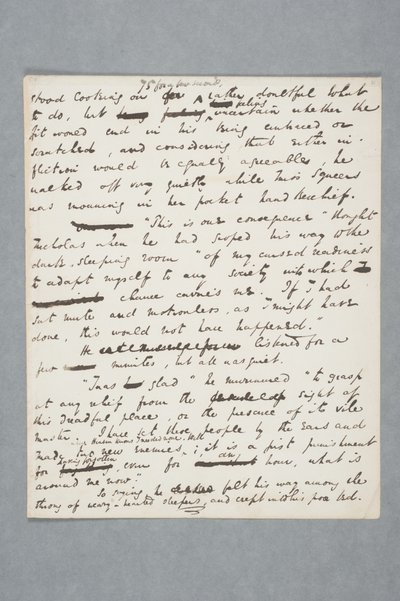 stood looking on rather doubtful what
to do, but perhaps uncertain whether the
fit would end in his being embraced or
scratched, and considering that either in-
fliction would be equally agreeable, he
walked off very quietly while Miss Squeers
was moaning in her pocket handkerchief.
"This is one consequence" thought
Nicholas when he had groped his way to the
dark sleeping room "of my cursed readiness
to adapt myself to any society into which
chance carries me. If I had
sat mute and motionless, as I might have
done, this would not have happened."
He listened for a
few minutes, but all was quiet.
"I was glad" he murmured "to grasp
at any relief from the sight of
this dreadful place, or the presence of its vile
master. I have set these people by the Ears and
made two new Enemies, where, Heaven knows, I needed none. Well
it is a just punishment
for having forgotten, even for an hour, what is
around me now."
So saying, he felt his way among the
throng of weary-hearted sleepers, and crept into his poor bed.